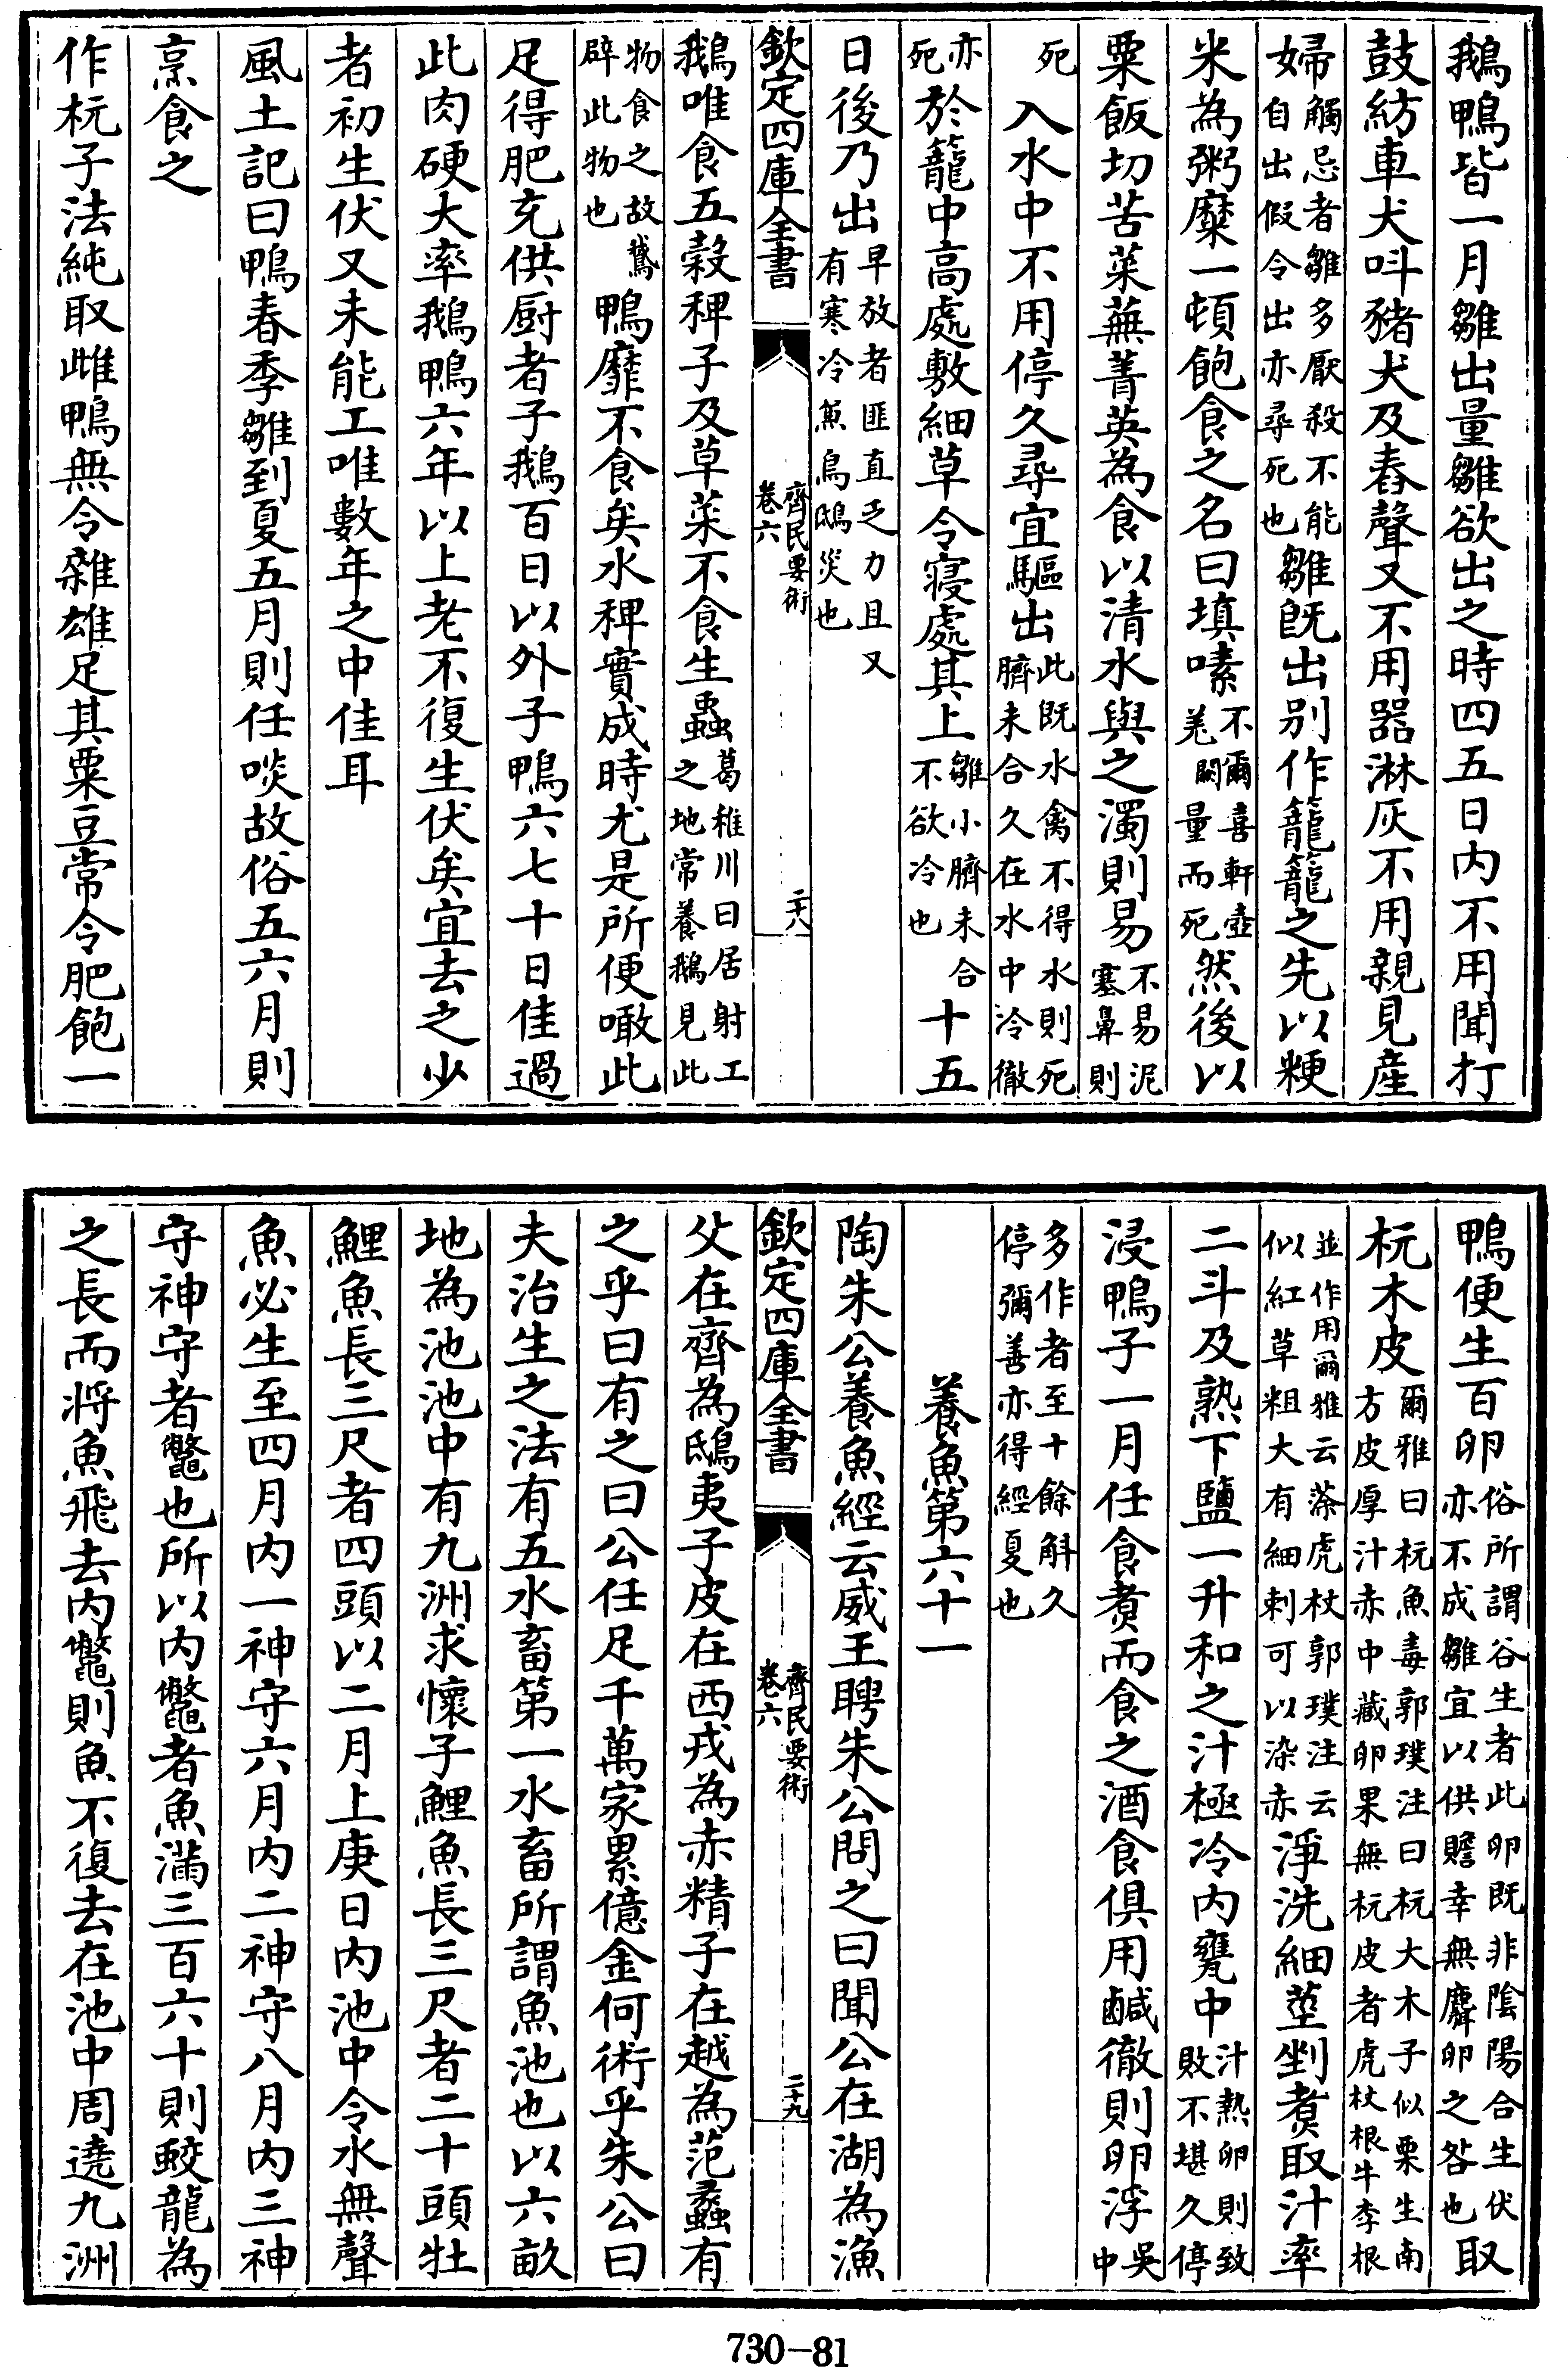 鵝鴨皆一月雛出量雛欲出之時四五日内不用聞打
鼓紡車犬呌豬犬及舂聲又不用器淋灰不用親見産
婦觸忌者雛多厭殺不能自出假令出亦尋死也雛既出别作籠籠之先以粳
米為粥糜一頓飽食之名曰填嗉不爾喜軒壺羗闕量而死然後以
粟飯切苦菜蕪菁英為食以清水與之濁則易不易泥塞鼻則
死入水中不用停久尋宜驅出此既水禽不得水則死臍未合久在水中冷徹
亦死於籠中高處敷細草令寝處其上雛小臍未合不欲冷也十五
日後乃出早放者匪直乏力且又有寒冷兼烏鴟災也
欽定四庫全書 齊民要術 卷六 二十八
鵝唯食五穀稗子及草菜不食生蟲葛稚川曰居射工之地常養鵝見此
物食之故鵞辟此物也鴨靡不食矣水稗實成時尤是所便噉此
足得肥充供厨者子鵝百日以外子鴨六七十日佳過
此肉硬大率鵝鴨六年以上老不復生伏矣宜去之少
者初生伏又未能工唯數年之中佳耳
風土記曰鴨春季雛到夏五月則任啖故俗五六月則
烹食之
作杬子法純取雌鴨無令雜雄足其粟豆常令肥飽一
鴨便生百卵俗所謂谷生者此卵既非陰陽合生伏亦不成雛宜以供贍幸無麛卵之咎也取
杬木皮爾雅曰杬魚毒郭璞注曰杬大木子似栗生南方皮厚汁赤中藏卵果無杬皮者虎杖根牛李根
並作用爾雅云蒤虎杖郭璞注云似紅草粗大有細刺可以染赤淨洗細莖剉煑取汁率
二斗及熟下鹽一升和之汁極冷内甕中汁熱卵則致敗不堪久停
浸鴨子一月任食煑而食之酒食俱用鹹徹則卵浮吳中
多作者至十餘斛久停彌善亦得經夏也
養魚第六十一
陶朱公養魚經云威王聘朱公問之曰聞公在湖為漁
欽定四庫全書 齊民要術 卷六 二十九
父在齊為鴟夷子皮在西戎為赤精子在越為范蠡有
之乎曰有之曰公任足千萬家累億金何術乎朱公曰
夫治生之法有五水畜第一水畜所謂魚池也以六畝
地為池池中有九洲求懷子鯉魚長三尺者二十頭牡
鯉魚長三尺者四頭以二月上庚日内池中令水無聲
魚必生至四月内一神守六月内二神守八月内三神
守神守者鼈也所以内鼈者魚滿三百六十則蛟龍為
之長而將魚飛去内鼈則魚不復去在池中周遶九洲
730-81